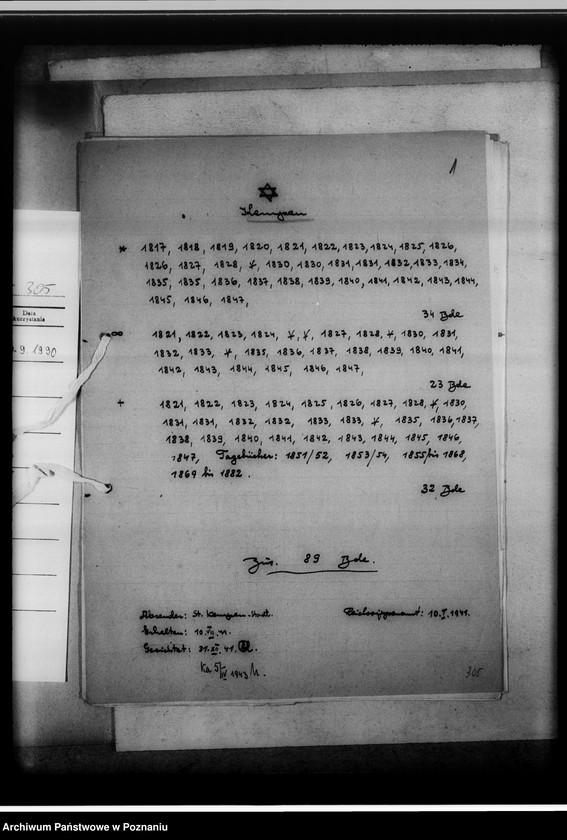 1
✡
Kempen
* 1817, 1818, 1819, 1820, 1821, 1822, 1823, 1824, 1825, 1826,
1826, 1827, 1828, *, 1830, 1830, 1831, 1831, 1832, 1833, 1834,
1835, 1835, 1836, 1837, 1838, 1839, 1840, 1841, 1842, 1843, 1844,
1845, 1846, 1847,
34 Bde
∞ 1821, 1822, 1823, 1824, *, *, 1827, 1828, *, 1830, 1831,
1832, 1833, *, 1835, 1836, 1837, 1838, 1839, 1840, 1841,
1842, 1843, 1844, 1845, 1846, 1847,
23 Bde
+ 1821, 1822, 1823, 1824, 1825, 1826, 1827, 1828, *, 1830,
1831, 1831, 1832, 1832, 1833, 1833, *, 1835, 1836, 1837,
1838, 1839, 1840, 1841, 1842, 1843, 1844, 1845, 1846,
1847, Tagebücher: 1851/52, 1853/54, 1855 bis 1868,
1869 bis 1882.
32 Bde
Zus. 89 Bde.
Absender: St. Kempen-Stadt.
Reichssippenamt: 10.I.1941.
Erhalten: 10.VII.41.
Gesichtet: 31.XII.41.
Ka 5/IV 1943
305
305
Data
korzystania
.9.1990
Archiwum Państwowe w Poznaniu